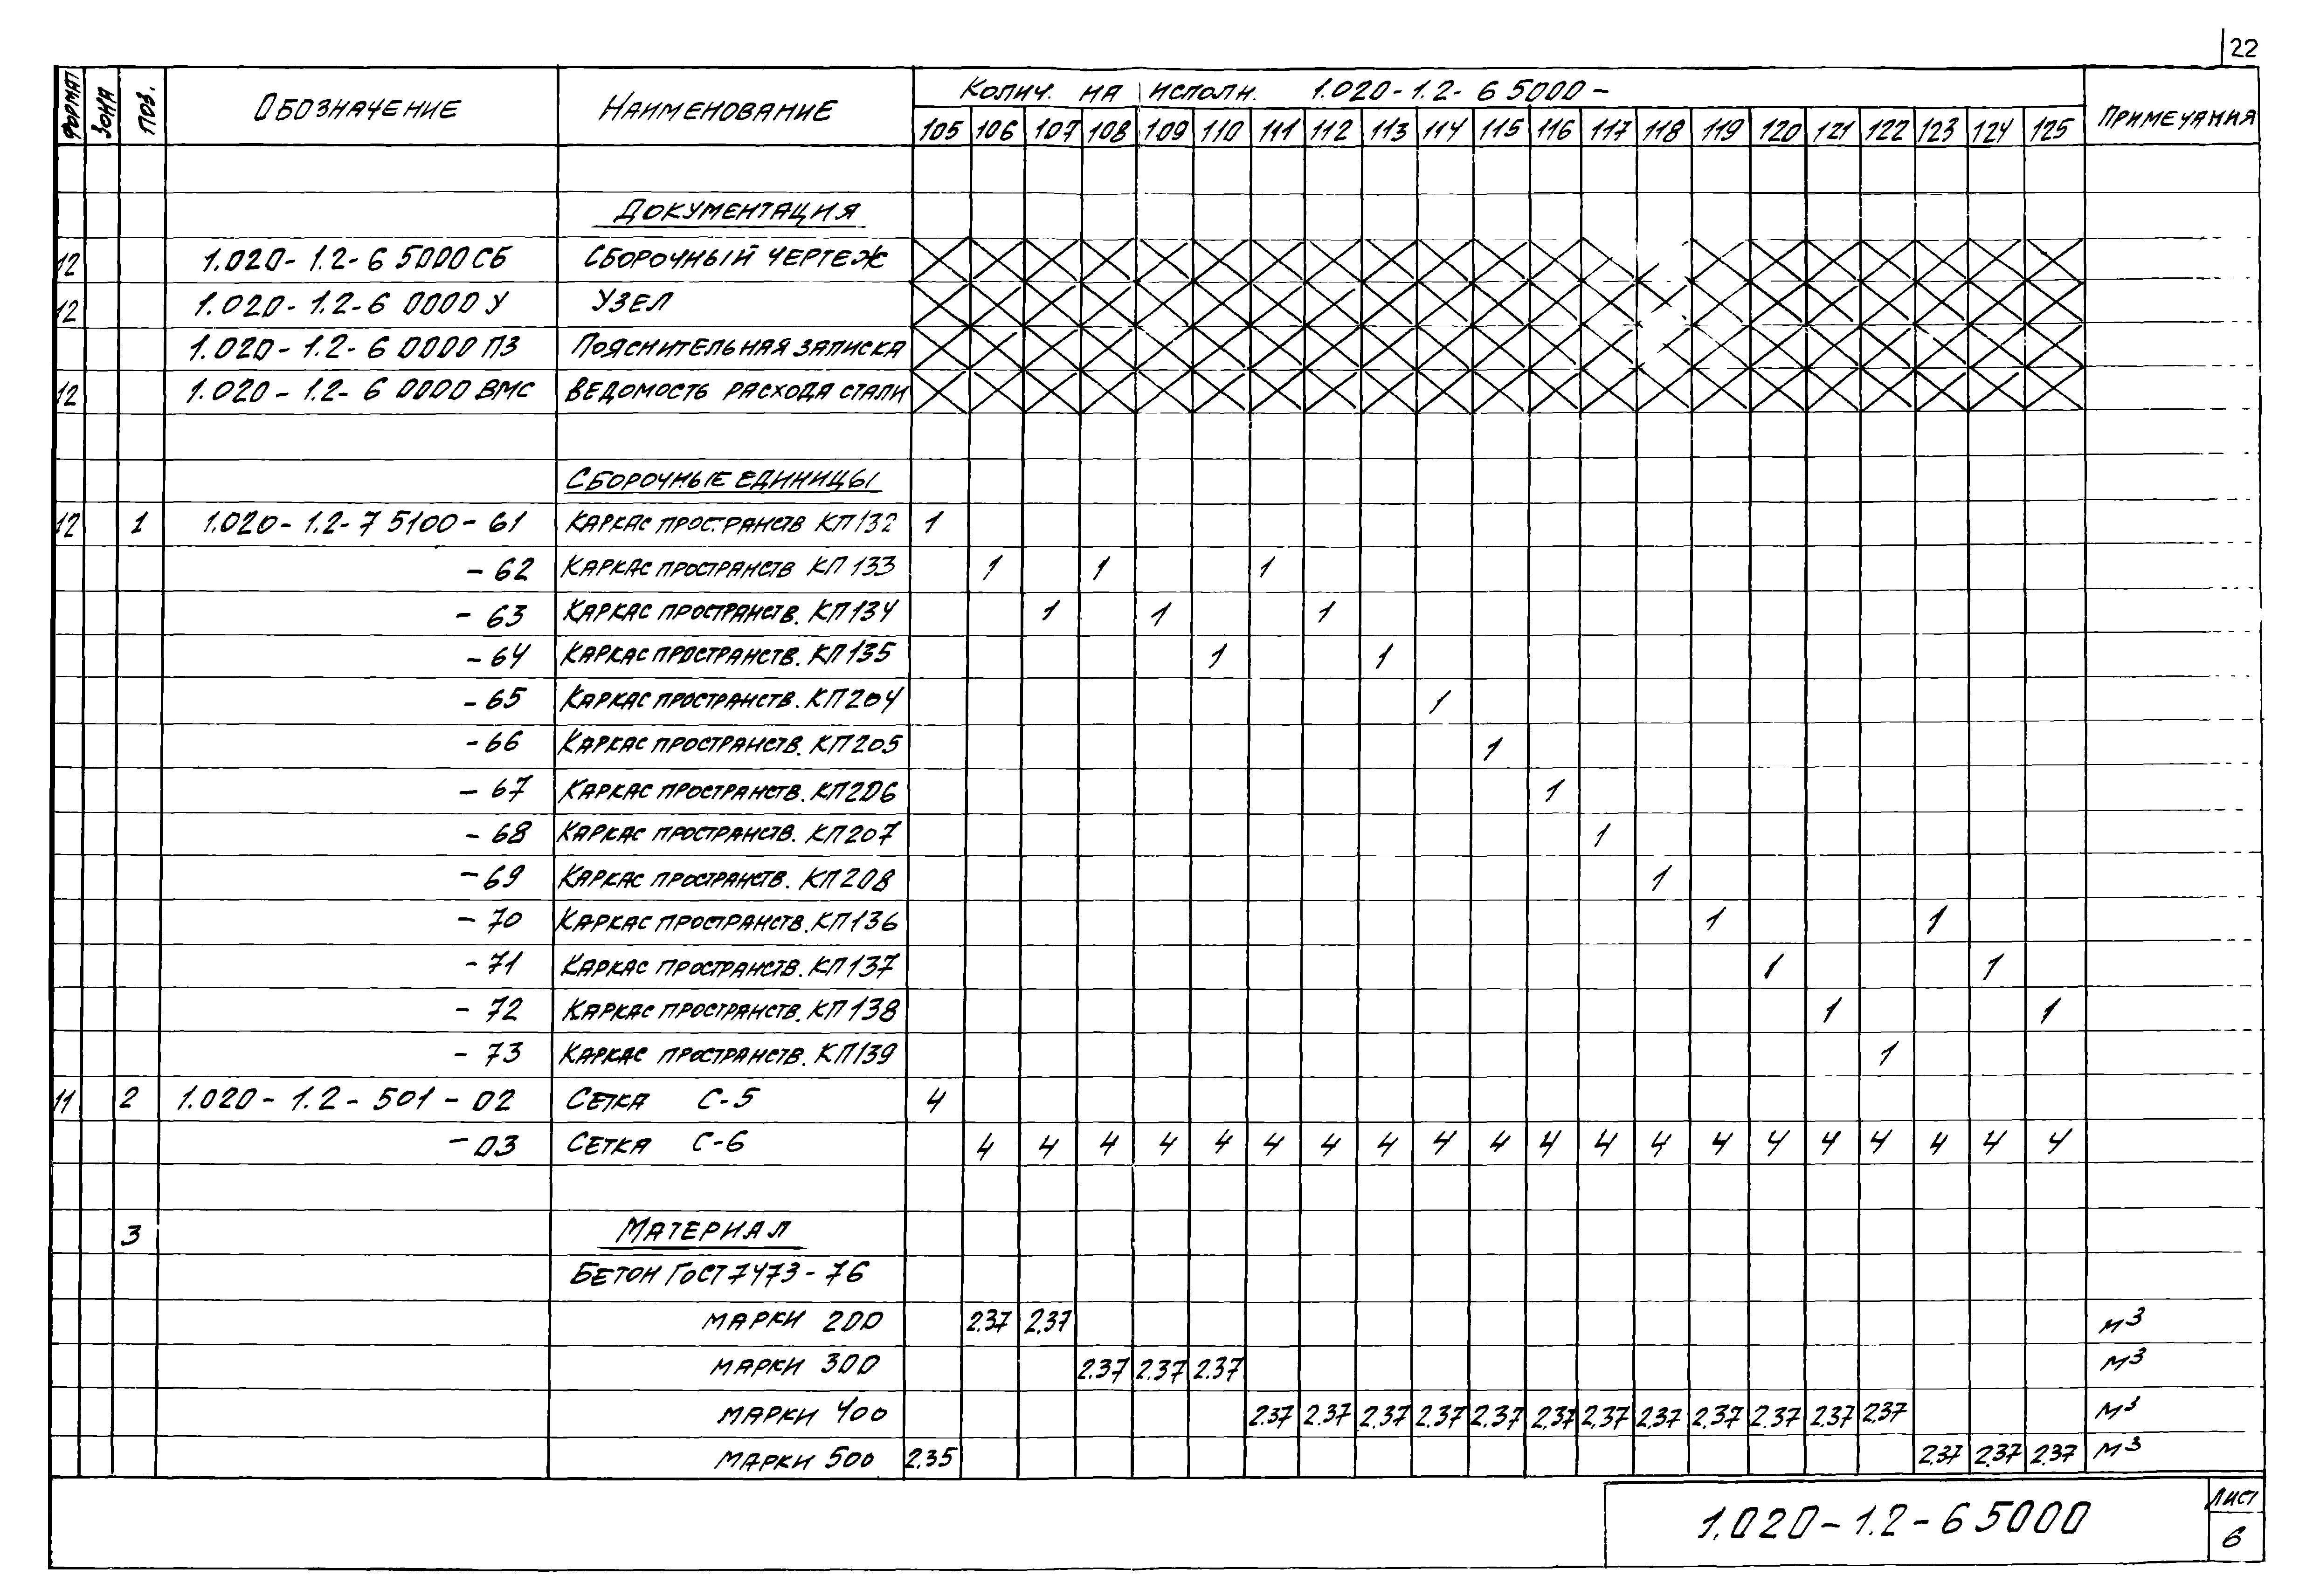 22
ФОРМАТ ЗОНА ПОЗ. ОБОЗНАЧЕНИЕ НАИМЕНОВАНИЕ КОЛИЧ. НА ИСПОЛН. 1.020-1.2-6 5000- ПРИМЕЧАНИЯ
105 106 107 108 109 110 111 112 113 114 115 116 117 118 119 120 121 122 123 124 125
ДОКУМЕНТАЦИЯ
12 1.020-1.2-6 5000СБ СБОРОЧНЫЙ ЧЕРТЕЖ
12 1.020-1.2-6 0000У УЗЕЛ
1.020-1.2-6 0000ПЗ ПОЯСНИТЕЛЬНАЯ ЗАПИСКА
12 1.020-1.2-6 0000ВМС ВЕДОМОСТЬ РАСХОДА СТАЛИ
СБОРОЧНЫЕ ЕДИНИЦЫ
12 1 1.020-1.2-7 5100-61 КАРКАС ПРОСТРАНСТВ КП132 1
-62 КАРКАС ПРОСТРАНСТВ КП133 1 1 1
-63 КАРКАС ПРОСТРАНСТВ. КП134 1 1 1
-64 КАРКАС ПРОСТРАНСТВ. КП135 1 1
-65 КАРКАС ПРОСТРАНСТВ. КП204 1
-66 КАРКАС ПРОСТРАНСТВ. КП205 1
-67 КАРКАС ПРОСТРАНСТВ. КП206 1
-68 КАРКАС ПРОСТРАНСТВ. КП207 1
-69 КАРКАС ПРОСТРАНСТВ. КП208 1
-70 КАРКАС ПРОСТРАНСТВ. КП136 1 1
-71 КАРКАС ПРОСТРАНСТВ. КП137 1 1
-72 КАРКАС ПРОСТРАНСТВ. КП138 1 1
-73 КАРКАС ПРОСТРАНСТВ. КП139 1
11 2 1.020-1.2-501-02 СЕТКА С-5 4
-03 СЕТКА С-6 4 4 4 4 4 4 4 4 4 4 4 4 4 4 4 4 4 4 4 4
3 МАТЕРИАЛ
БЕТОН ГОСТ 7473-76
МАРКИ 200 2.37 2.37 м3
МАРКИ 300 2.37 2.37 2.37 м3
МАРКИ 400 2.37 2.37 2.37 2.37 2.37 2.37 2.37 2.37 2.37 2.37 2.37 2.37 м3
МАРКИ 500 2.35 2.37 2.37 2.37 м3
1.020-1.2-6 5000
ЛИСТ
6